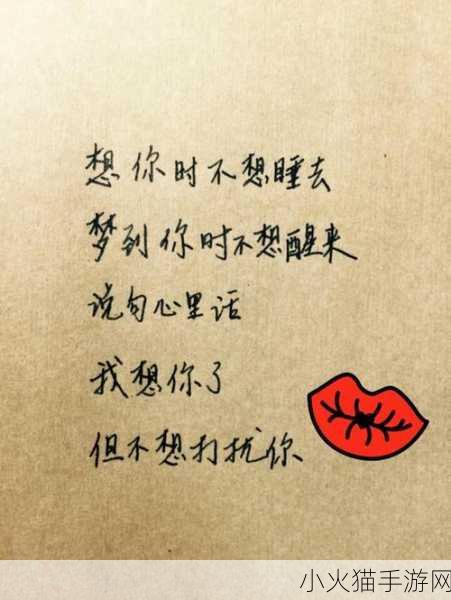 想你时不想睡去
梦到你时不想醒来
说句心里话
我想你了
但不想打扰你
小火猫手游网